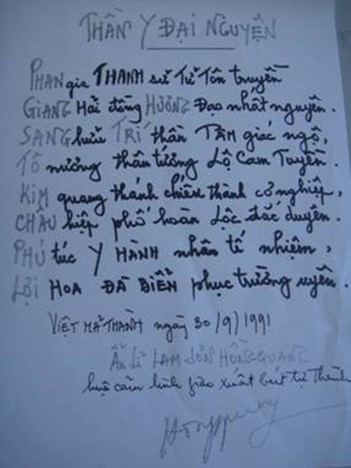 THẦN Y ĐẠI NGUYỆN
PHAN gia THANH sử Tử Tôn truyền
GIANG Hải đồng HƯỚNG Đạo nhất nguyên.
SANG hữu TRÍ thần TÂM giác ngộ,
TÔ nương thần tướng Lộ Cam Tuyền.
KIM quang thánh chiếu thành cơ nghiệp,
CHÂU hiệp phố hoan Lộc đắc duyên.
PHÚ túc Y HÀNH nhân tế nhiệm,
LỢI HOA ĐÀ BIỂN phục trường uyên.
VIỆT MÃ THÀNH ngày 30/9/1991
Ẩn sĩ LAM SƠN HỒNG QUANG
cảm linh giáo xuất bút tự Thành